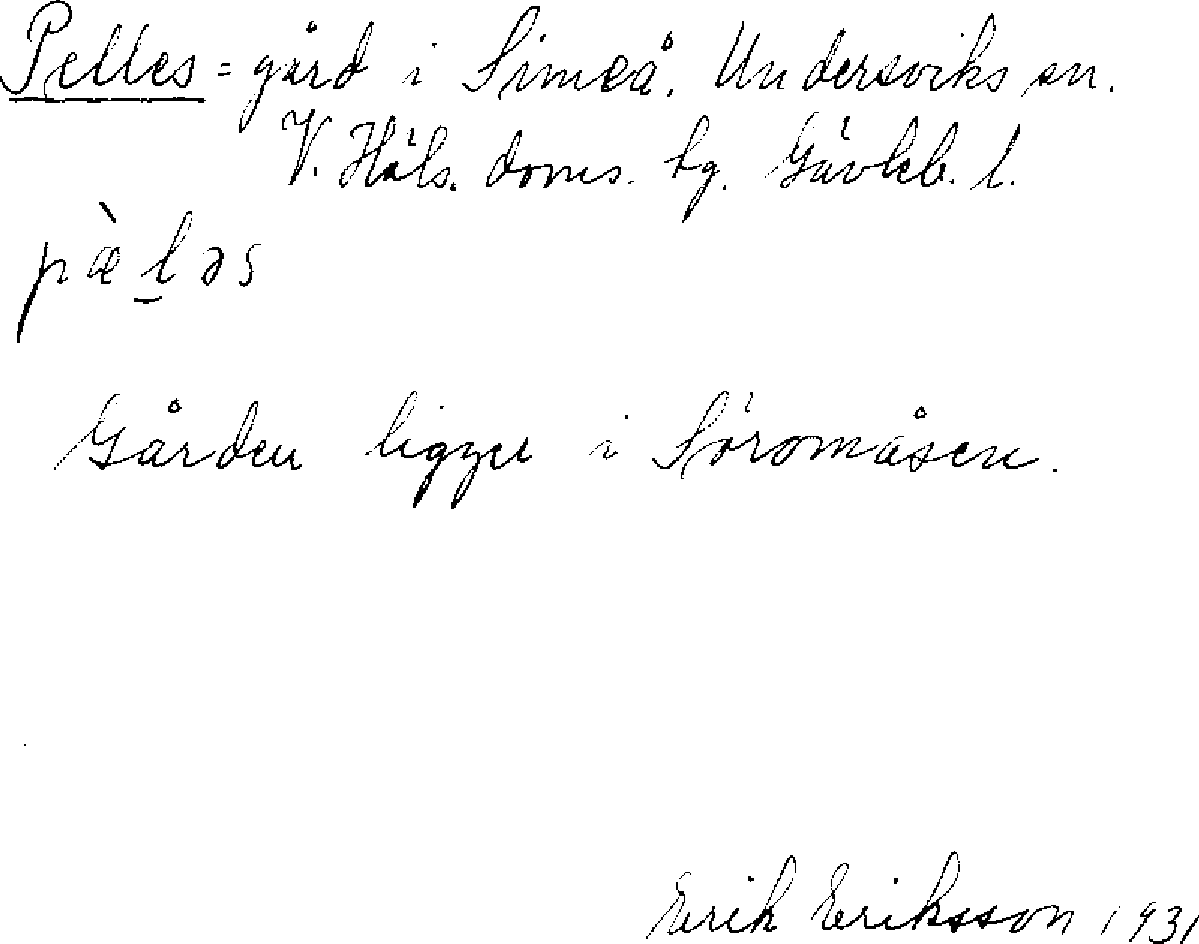 Pelles = gård i Simeå. Undersviks sn.
V. Häls. doms. tg. Gävleb. l.
pæ̀l̲əs
Gården ligger i Söromåsen.
Erik Eriksson 1931